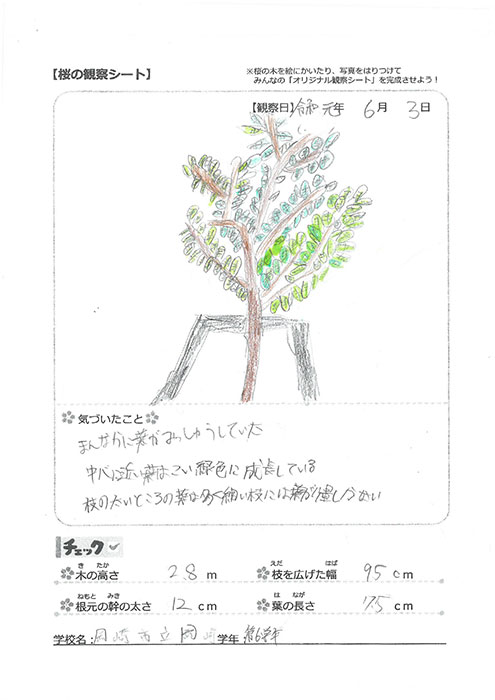 【桜の観察シート】
※桜の木を絵にかいたり、写真をはりつけて
みんなの「オリジナル観察シート」を完成させよう！
【観察日】令和元年 6月 3日
気づいたこと
まんなかに葉がみっしゅうしていた
中心に近い葉はこい緑色に成長している
枝の太いところの葉は多く細い枝には葉が少ない
チェック
木の高さ 2.8 m
枝を広げた幅 95 cm
根元の幹の太さ 12 cm
葉の長さ 7.5 cm
学校名：岡崎市立岡崎 学年：第6学年